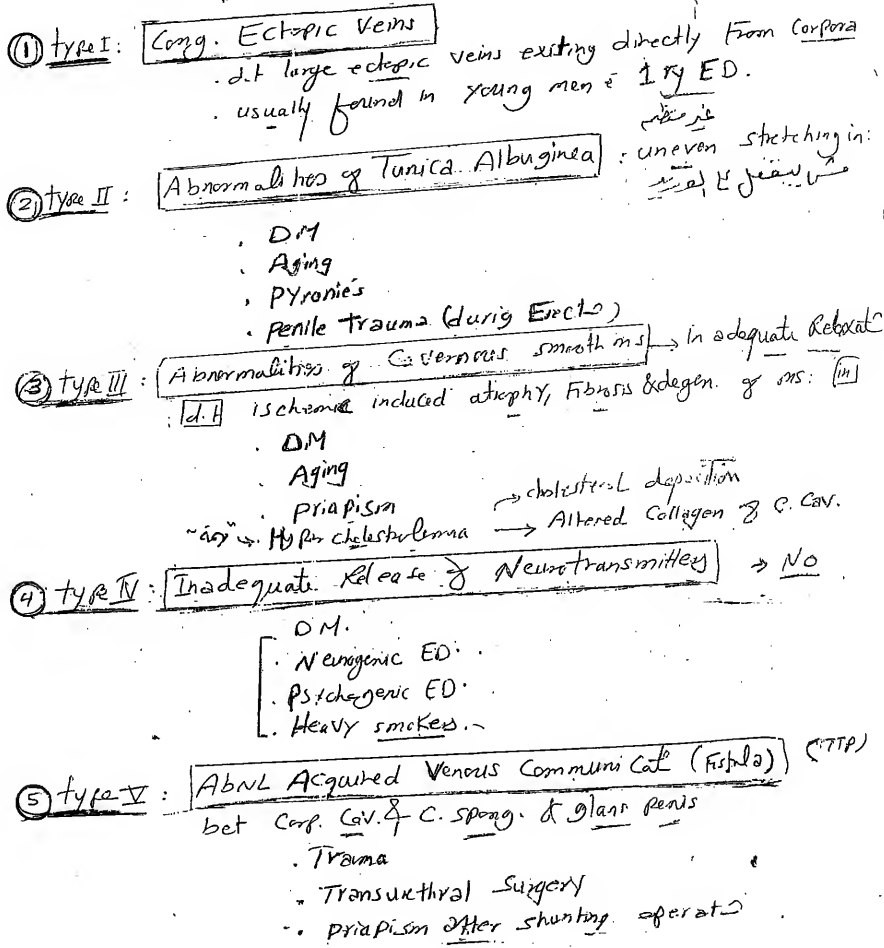 ① type I: Cong. Ectopic Veins
. d.t large ectopic veins exsiting directly from Corpora
. usually found in young men c̄ 1ry ED.
② type II: Abnormalities of Tunica Albuginea : uneven stretching in:
غير منتظم
. DM
. Aging
. Pyronie's
. Penile trauma (durig Erect⁻)
③ type III: Abnormalities of Cavernous smooth ms → in adequate Relaxat⁻
: d.t ischemic induced atrophy, Fibrosis & degen. of ms: in
. DM
. Aging
. Priapism
Hyper cholesterolemia → cholesterol deposition
→ Altered Collagen of C. Cav.
④ type IV: Inadequate Release of Neurotransmitters → No
. DM.
. Neurogenic ED.
. Psychogenic ED.
. Heavy smokers.
⑤ type V: AbNL Acquired Venous Communicat⁻ (Fistula) (TTP)
bet Corp. Cav. & C. spong. & glans penis
. Trauma
. Transurethral Surgery
. Priapism after shunting operat⁻